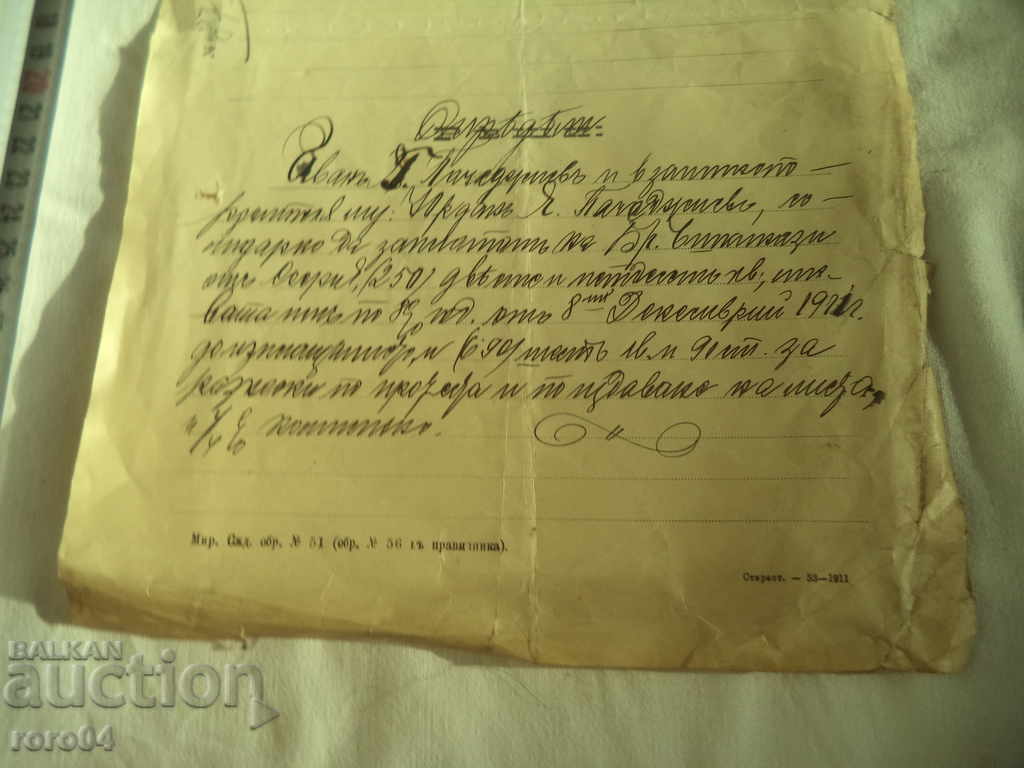 Опредѣли:
Иванъ П. Пачаджиевъ и взаимно по-
рѫчителя му: Юрданъ Я. Пачаджиевъ, со-
лидарно да заплатятъ на Бр.
отъ (250) двѣстѣ и петдесеть лв;
вата имъ по 8% год. отъ 8ми Декемврий 1911г.
до изплащането, и (6·90) шесть лв. и 90 ст. за
разноски по процеса и по издаване на листа,
и % комисиона.
Мир. Сѫд. обр. № 51 (обр. № 56 къ правилника).
Старост. — 53—1911
BALKAN
auction
roro04